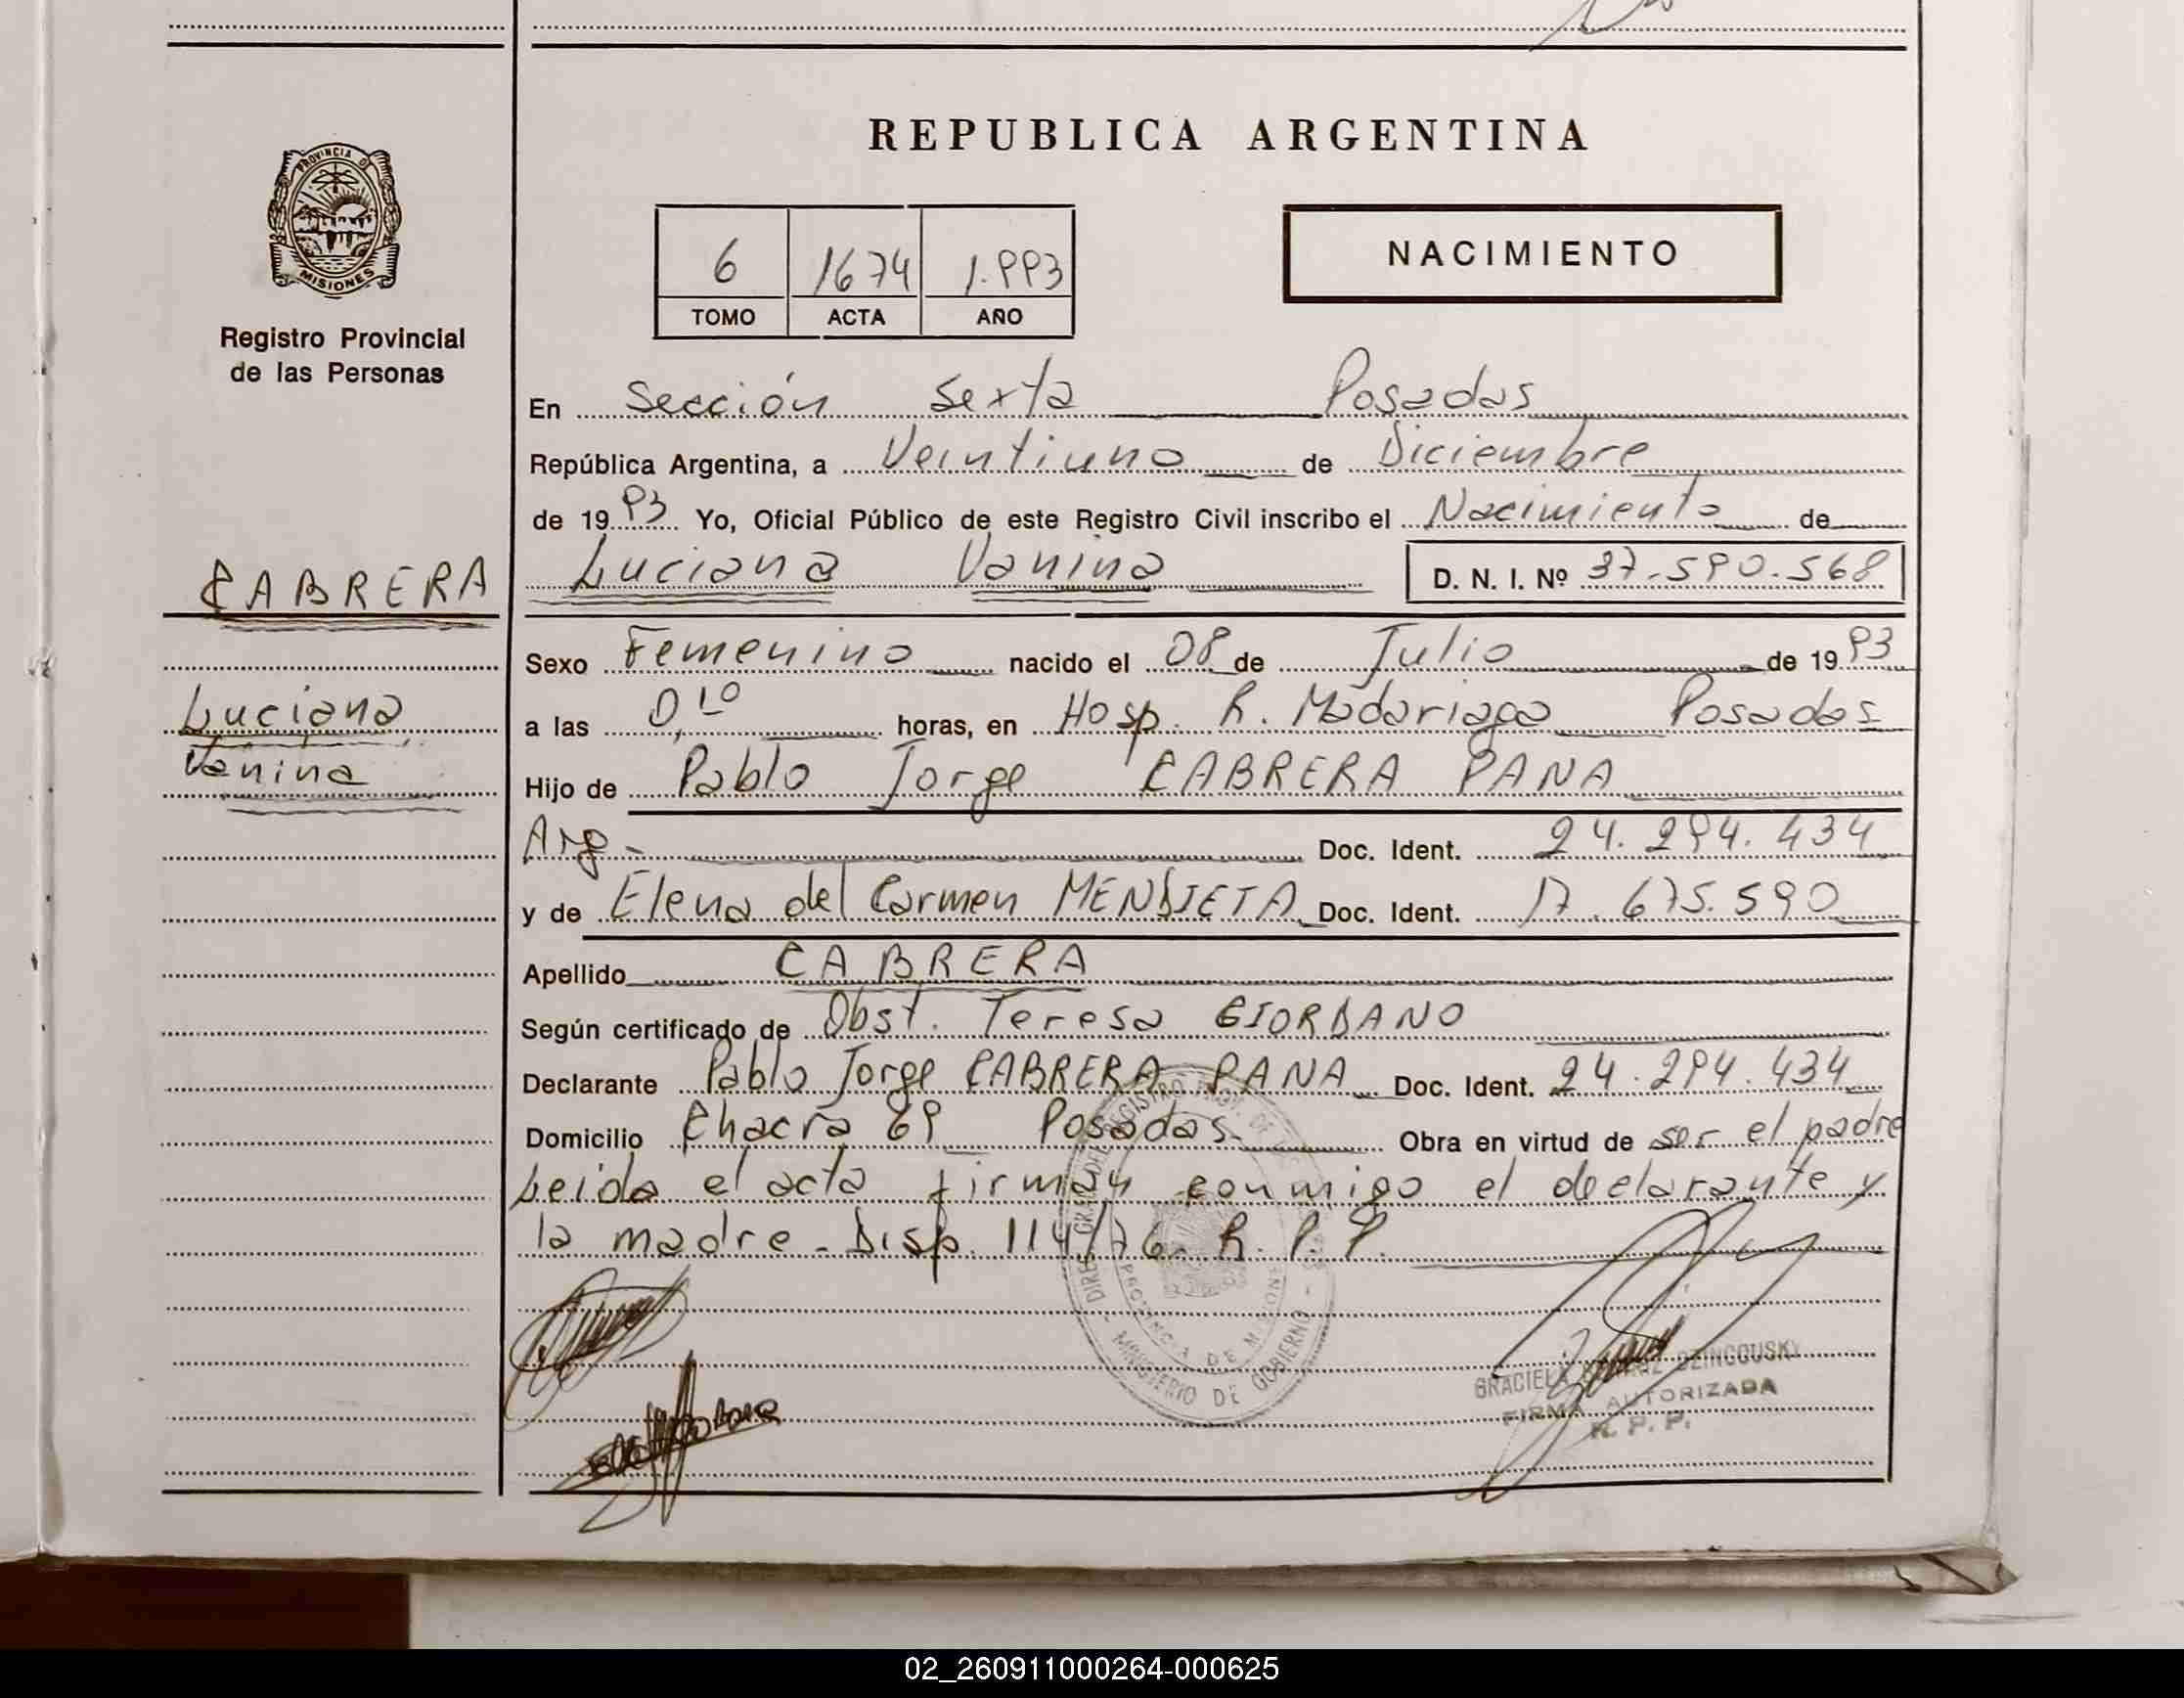 REPUBLICA ARGENTINA
PROVINCIA DE
MISIONES
Registro Provincial
de las Personas
6 1674 1.993
TOMO ACTA AÑO
NACIMIENTO
En Sección Sexta Posadas
República Argentina, a Veintiuno de Diciembre
de 1993 Yo, Oficial Público de este Registro Civil inscribo el Nacimiento de
CABRERA
Luciana Vanina D. N. I. Nº 37.590.568
Sexo Femenino nacido el 08 de Julio de 1993
Luciana
Vanina
a las 0,10 horas, en Hosp. R. Madariaga Posadas
Hijo de Pablo Jorge CABRERA PANA
Arg- Doc. Ident. 24.294.434
y de Elena del Carmen MENDIETA Doc. Ident. 17.675.590
Apellido CABRERA
Según certificado de Obst. Teresa GIORDANO
Declarante Pablo Jorge CABRERA PANA Doc. Ident. 24.294.434
Domicilio Chacra 69 Posadas Obra en virtud de ser el padre
Leida el acta firman conmigo el declarante y
la madre - Disp. 114/76. R. P. P.
MINISTERIO DE GOBIERNO
PROVINCIA DE MISIONES
GRACIELA
FIRMA AUTORIZADA
R. P. P.
02_260911000264-000625